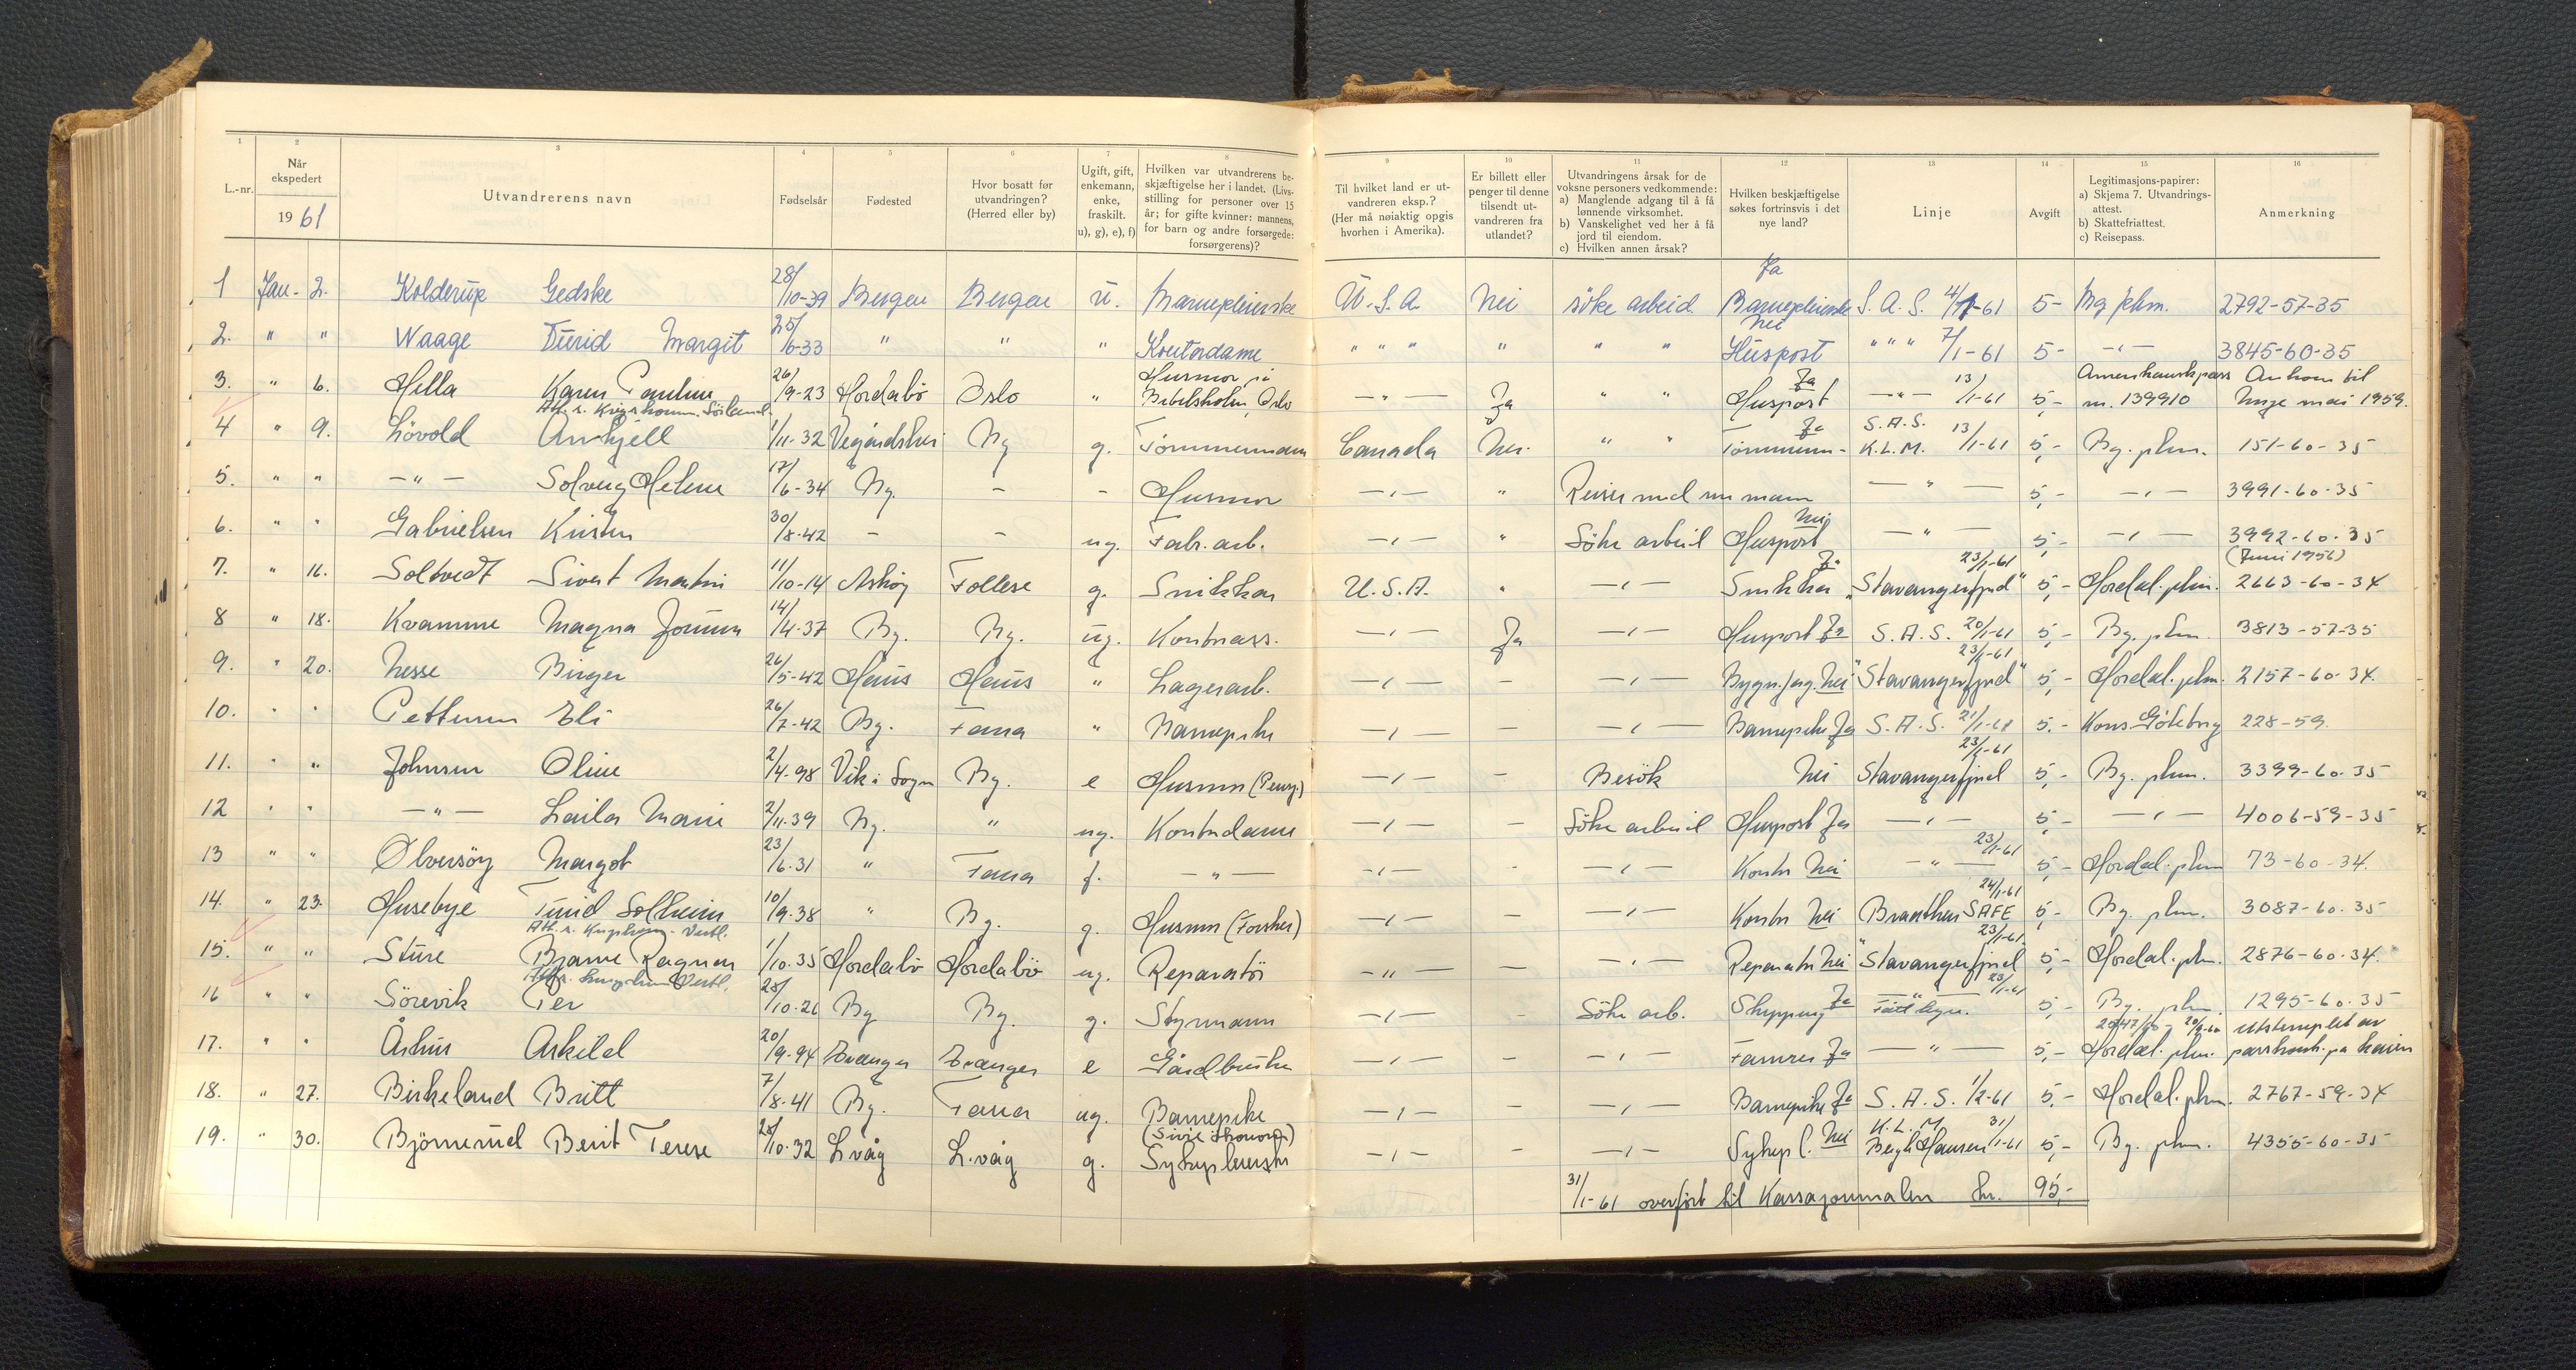 1 2 3 4 5 6 7 8 9 10 11 12 13 14 15 16
L.-nr. Når ekspedert 1961 Utvandrerens navn Fødselsår Fødested Hvor bosatt før utvandringen? (Herred eller by) Ugift, gift, enkemann, enke, fraskilt. u), g), e), f) Hvilken var utvandrerens beskjæftigelse her i landet. (Livsstilling for personer over 15 år; for gifte kvinner: mannens, for barn og andre forsørgede: forsørgerens)? Til hvilket land er utvandreren eksp.? (Her må nøiaktig opgis hvorhen i Amerika). Er billett eller penger til denne tilsendt utvandreren fra utlandet? Utvandringens årsak for de voksne personers vedkommende: a) Manglende adgang til å få lønnende virksomhet. b) Vanskelighet ved her å få jord til eiendom. c) Hvilken annen årsak? Hvilken beskjæftigelse søkes fortrinsvis i det nye land? Linje Avgift Legitimasjons-papirer: a) Skjema 7. Utvandringsattest. b) Skattefriattest. c) Reisepass. Anmerkning
1 Jan. 2. Kolderup Gedske 28/10-39 Bergen Bergen u. Barnepleierske U.S.A. Nei söke arbeid Ja Barnepleierske S.A.S. 4/1-61 5- Bg pkm. 2792-57-35
2. " " Waage Turid Margit 25/6-33 " " " Kontordame " " " " " " Nei Huspost " " " 7/1-61 5- -"- 3845-60-35
3. " 6. Hella Karen Pauline 26/9-23 Hordabö Oslo " Husmor, Oslo -"- Ja " " Ja Huspost -"- 13/1-61 5,- Amerikansk pass nr. 139910 Ankom til Norge mai 1959.
4 " 9. Lövold Arnkjell 1/11-32 Vegårdshei Bg g. Tömmermann Canada Nei. " " Ja Tömmerm- S.A.S. K.L.M. 13/1-61 5,- Bg. pkm. 151-60-35
5. " " -"- Solveig Helene 17/6-34 Bg. - - Husmor -"- " Reiser med sin mann -"- 5,- -"- 3991-60-35
6. " " Gabrielsen Kirsten 30/8-42 - - ug. Fabr. arb. -"- " Söke arbeid Huspost Nei -"- 5,- -"- 3992-60-35
7. " 16. Soltvedt Sivert Martin 11/10-14 Askøy Follese g. Snikker U.S.A. " -"- Ja Snikker "Stavangerfjord" 23/1-61 5,- Hordal. pkm. (Juni 1956) 2663-60-34
8 " 18. Kvamme Magna Jorunn 14/4-37 Bg. Bg. ug. Kontorass. -"- Ja -"- Huspost Ja S.A.S. 20/1-61 5,- Bg. pkm. 3813-57-35
9. " 20. Nesse Birger 26/5-42 Haus Haus " Lagerarb. -"- - -"- Bygn.fag. Nei "Stavangerfjord" 23/1-61 5,- Hordal. pkm. 2157-60-34.
10. " " Pettersen Eli 26/7-42 Bg. Fana " Barnepike -"- - -"- Barnepike Ja S.A.S. 21/1-61 5.- Kons. Göteborg 228-59.
11. " " Johnsen Oline 2/4-98 Vik i Sogn Bg. e Husmor (Pensj.) -"- - Besök Nei Stavangerfjord 23/1-61 5,- Bg. pkm. 3399-60-35
12 " " -"- Laila Marie 2/11.39 Bg. " ug. Kontordame -"- - Söke arbeid Huspost Ja -"- 5,- -"- 4006-59-35
13 " " Ölversöy Margot 23/6.31 " Fana f. -"- -"- - -"- Kontor Nei -"- 23/1-61 5,- Hordal. pkm 73-60-34.
14. " 23. Husebye Turid Solheim 10/9.38 " Bg. g. Husmor (Forsker) -"- - -"- Kontor Nei Braathen SAFE 24/1-61 5,- Bg. pkm. 3087-60.35
15. " " Sture Bjarne Ragnar 1/10.35 Hordabö Hordabö ug. Reparatör -"- - -"- Reparatör Nei "Stavangerfjord 23/1-61. 5,- Hordal. pkm. 2876-60.34.
16 " " Sörevik Per 28/10.26 Bg Bg. g. Styrmann -"- - Söke arb. Shipping Ja 23/1-61 5,- Bg. pkm. 1295-60.35
17. " " Århus Askild 20/9-94 Evanger Evanger e Gårdbruker -"- - -"- Farmer Ja -"- 5,- Hordal. pkm. utstemplet av passkontr. på kaien
18. " 27. Birkeland Britt 7/8.41 Bg. Fana ug. Barnepike -"- - -"- Barnepike Ja S.A.S. 1/2-61 5,- Hordal. pkm. 2767-59-34
19. " 30. Björnerud Berit Terese 28/10.32 L.våg L.våg g. Sykepleierske -"- - -"- Sykepl. Nei K.L.M. 31/1-61 5,- Bg. pkm. 4355-60-35
31/1-61 overfört til Kassajournalen kr. 95,-